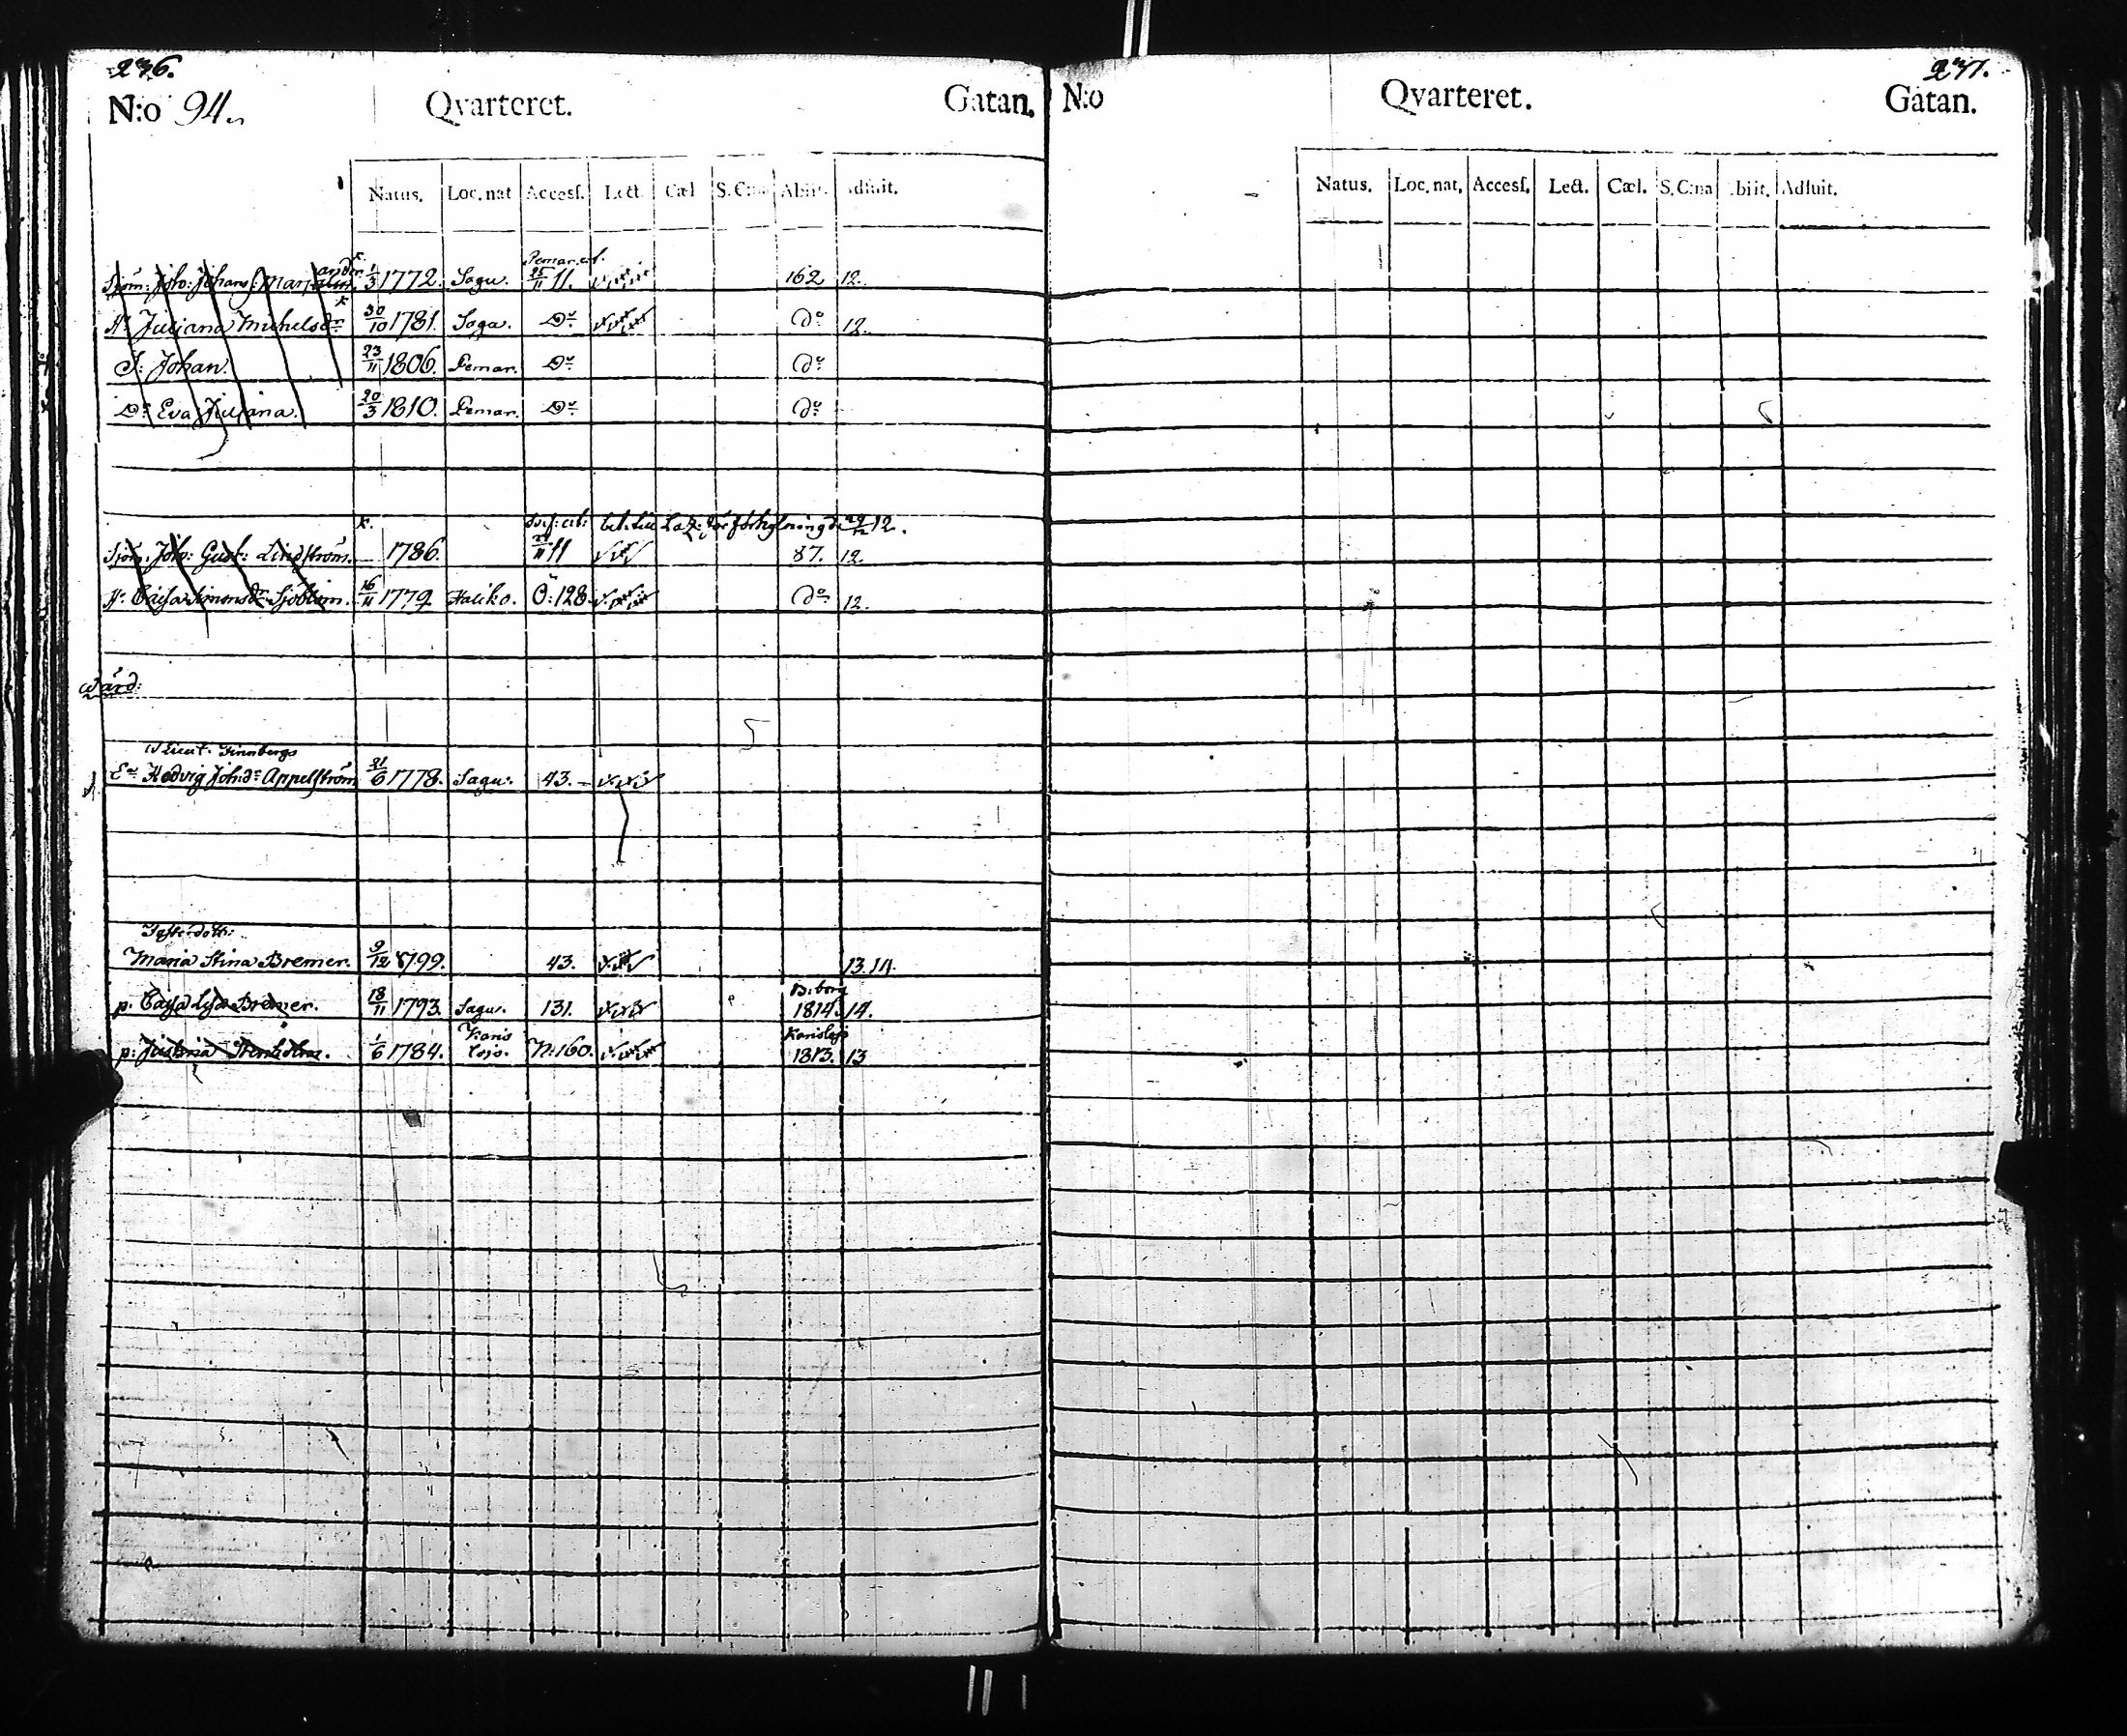 236.
N:o 94. Qvarteret. Gatan.
Natus. Loc. nat Accesſ. Lect. Cæl S. C:na Abiit. Adſuit.
Pemar. att.
Sjöm: Joh: Johans: 1/3 1772. Sagu. 25/11 11. 162 12.
H: Juliana Michelsdr 30/10 1781. Sagu. Do 12.
S: Johan. 23/11 1806. Pemar. Do
Dr Eva Juliana. 20/3 1810. Pemar. Do
12.
Sjöm. Joh: Gust: Lindström. 1786. 11 87. 12.
H: Caisa Simonsdr Sjöblom. 16/11 1779 Haliko. Ö:128 Do 12.
Wärd:
Lieut. Finnbergs
Ea Hedvig Joh:dr Appelström 21/6 1778. Sagu. 43.
Systerdotter:
Maria Stina Bremer. 9/12 1799. 43. 13.14.
B:borg
p. Caisa Lisa Bremer. 18/11 1793. Sagu. 131. 1814. 14.
Karis Karislojo
p: Justina Stenholm. 1/6 1784. lojo. N:160. 1813. 13
237.
N:o Qvarteret. Gatan.
Natus. Loc. nat. Accesſ. Lect. Cæl. S. C:na Abiit. Adſuit.